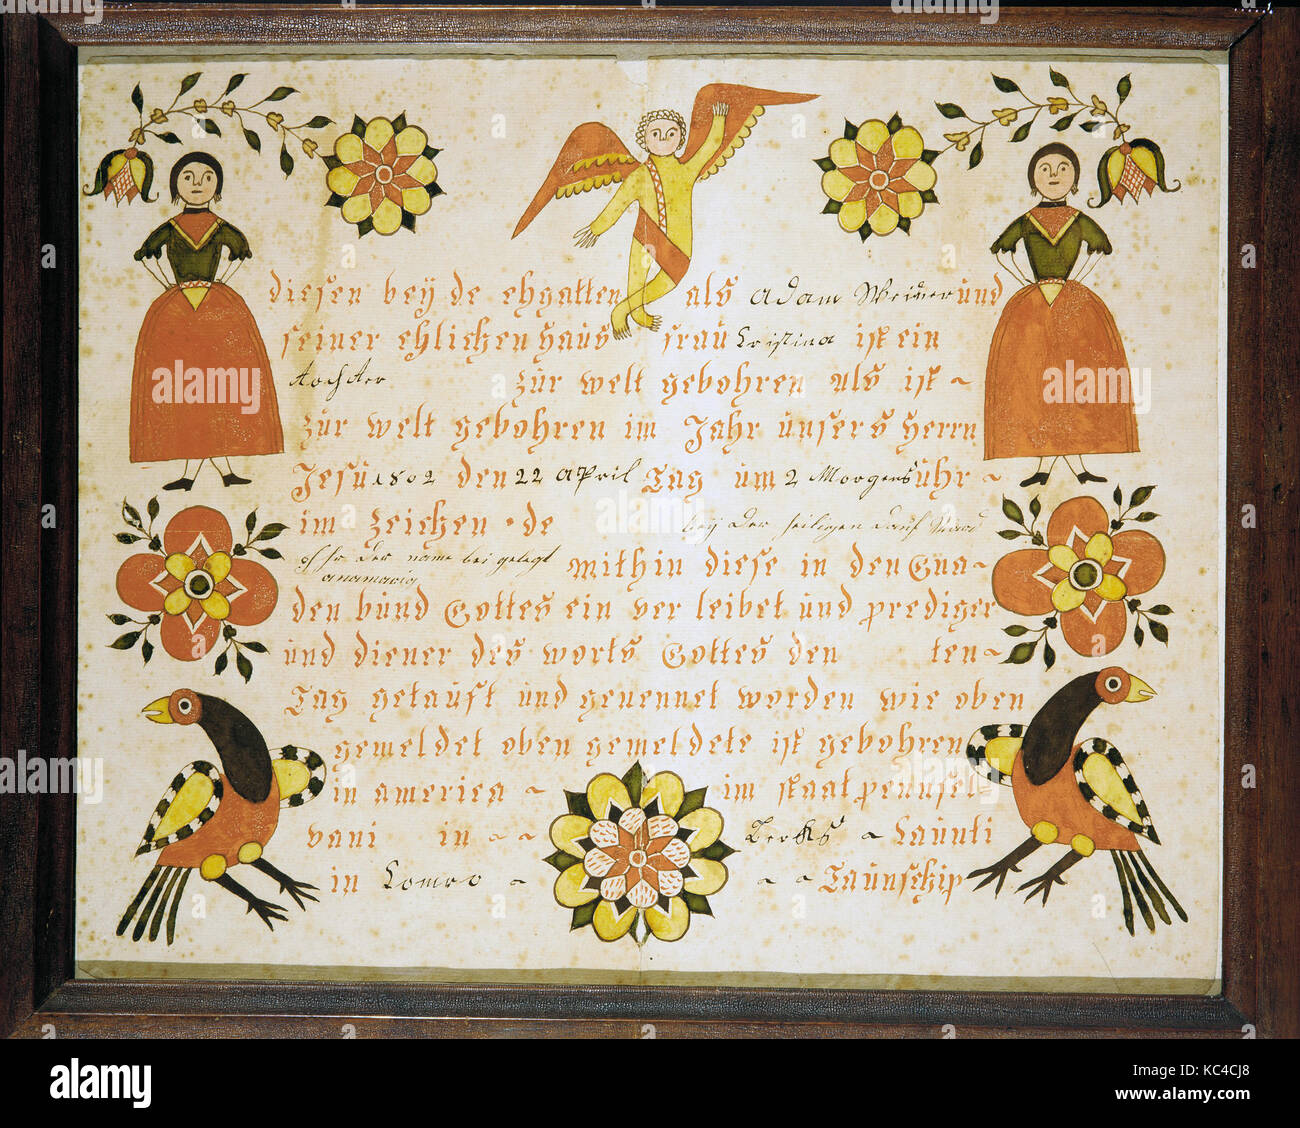 diesen beÿ de ehgatten als Adam und
seiner ehlichen haus frau Cristina ist ein
tochter zur welt gebohren als ist ~
zur welt gebohren im Jahr unsers herrn
Jesu 1802 den 22 April Tag um 2 Morgens uhr ~
im zeichen · de beÿ der heiligen Tauf
der name bei gelegt mithin diese in den Gna-
anamaria
den bund Gottes ein ver leibet und prediger
und diener des worts Gottes den ten ~
Tag getauft und genennet worden wie oben
gemeldet oben gemeldete ist gebohren
in america ~ im staat pennsel=
vani in ~ ~ Berks ~ Caunti
in Comro ~ ~ ~ Taunschip
a alamy stock photo
alamy
Image ID: KC4CJ8
www.alamy.com